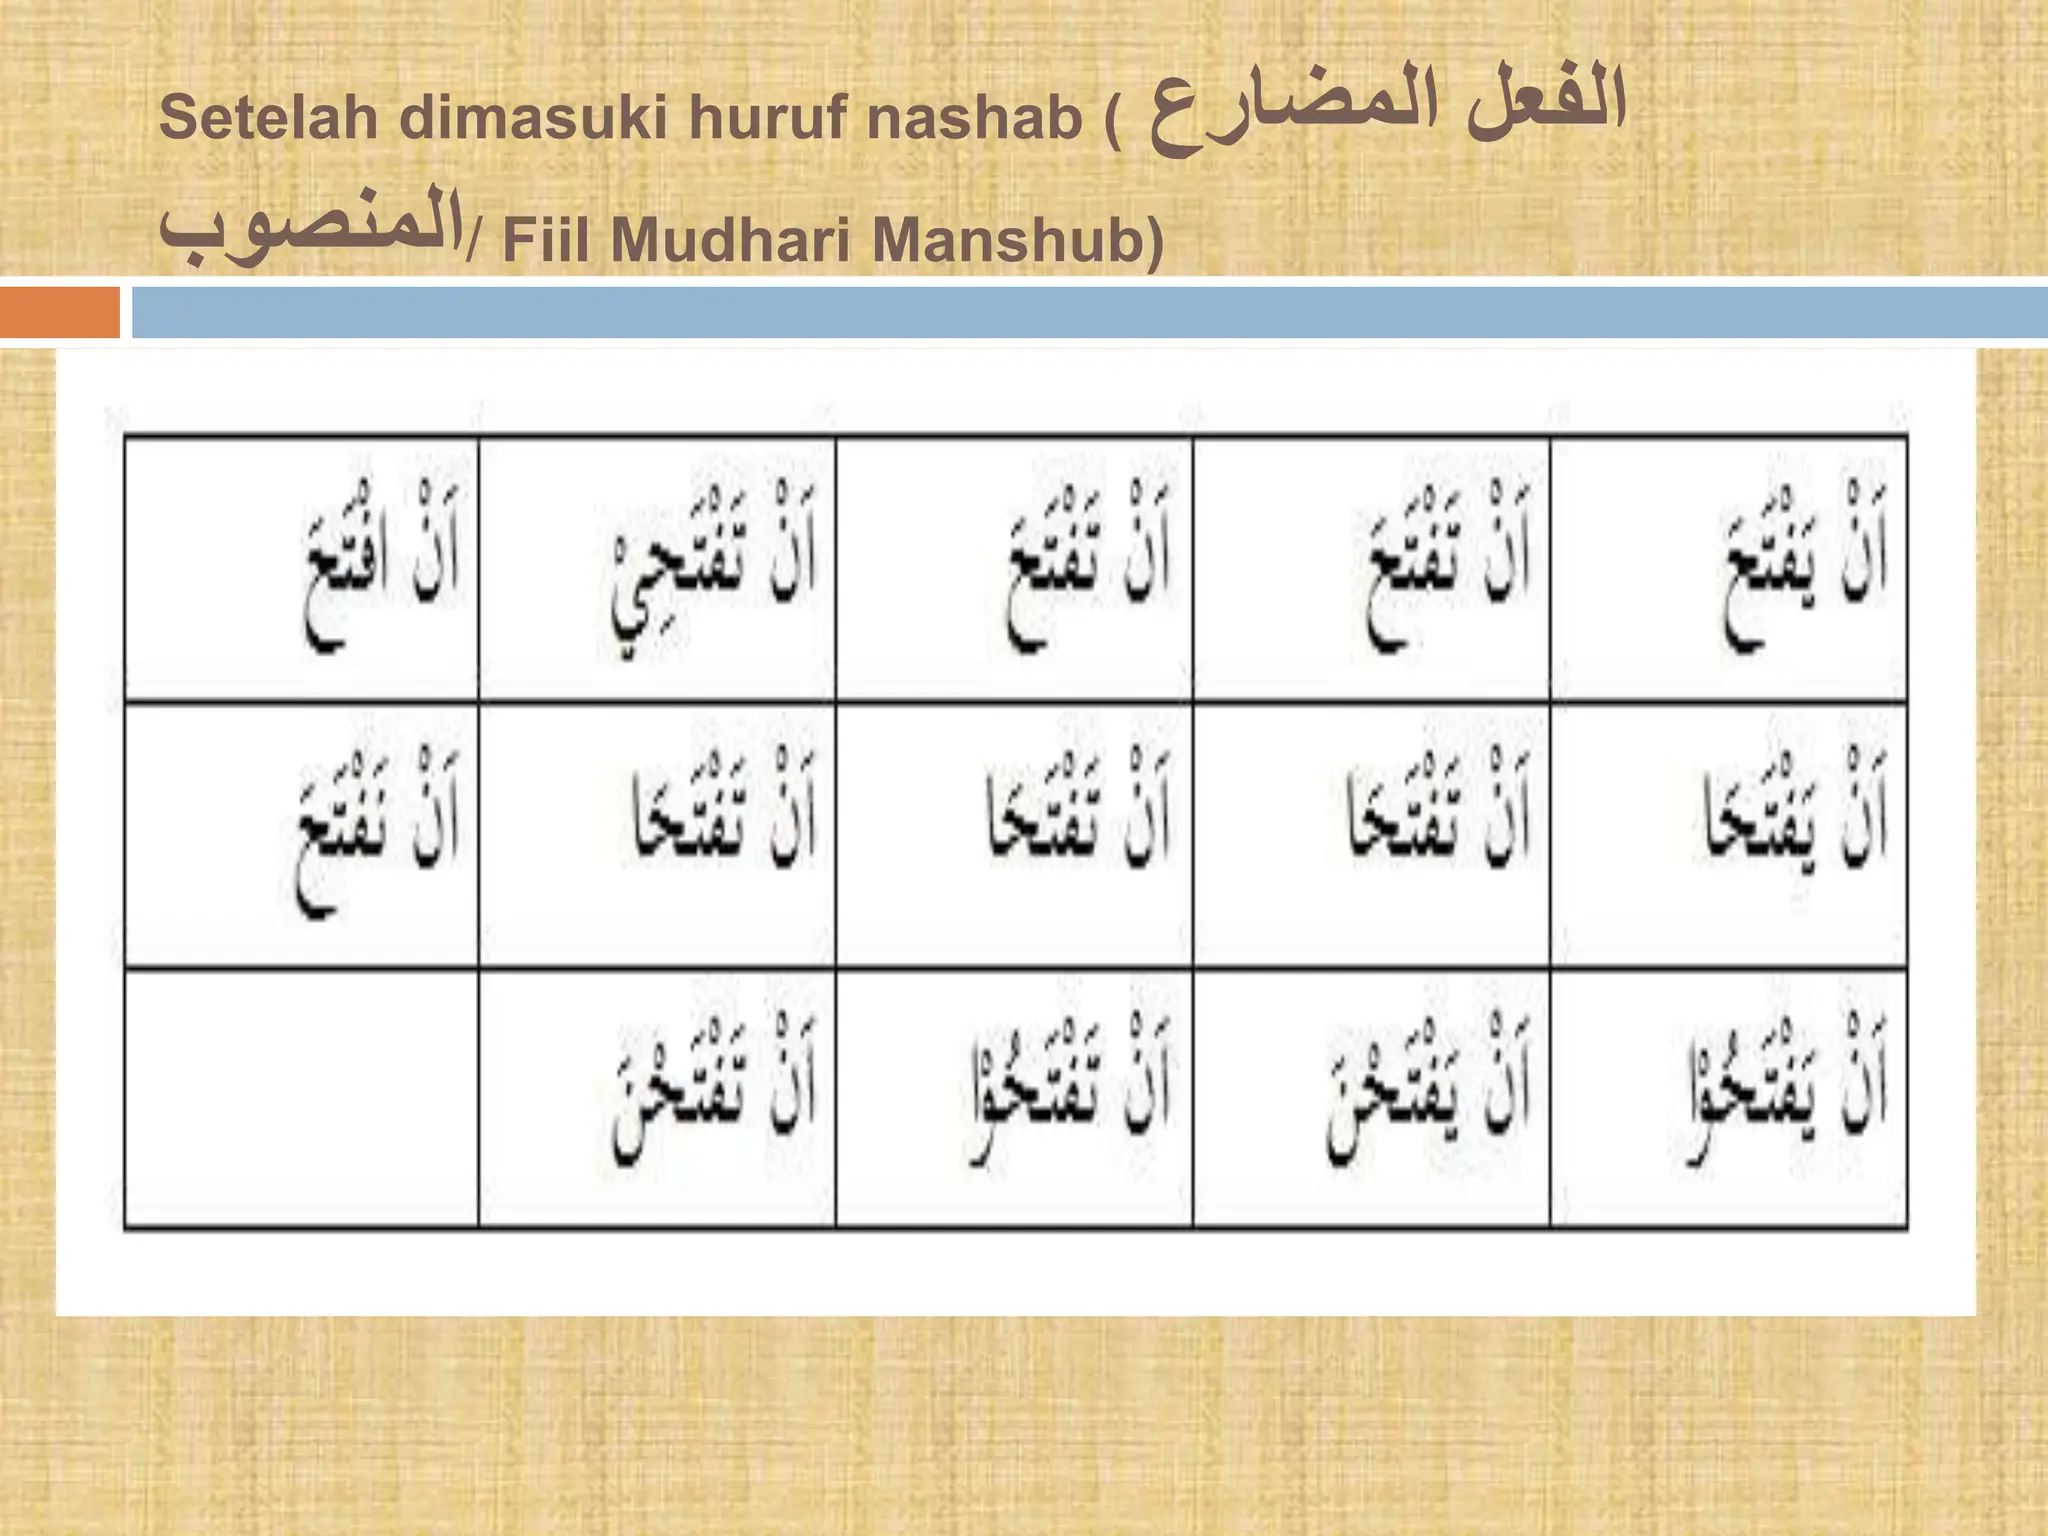 Setelah dimasuki huruf nashab ( الفعل المضارع
المنصوب/ Fiil Mudhari Manshub)
اَنْ يَفْتَحَ اَنْ تَفْتَحَ اَنْ تَفْتَحَ اَنْ تَفْتَحِيْ اَنْ افْتَحَ
اَنْ يَفْتَحَا اَنْ تَفْتَحَا اَنْ تَفْتَحَا اَنْ تَفْتَحَا اَنْ نَفْتَحَ
اَنْ يَفْتَحُوْا اَنْ يَفْتَحْنَ اَنْ تَفْتَحُوْا اَنْ تَفْتَحْنَ